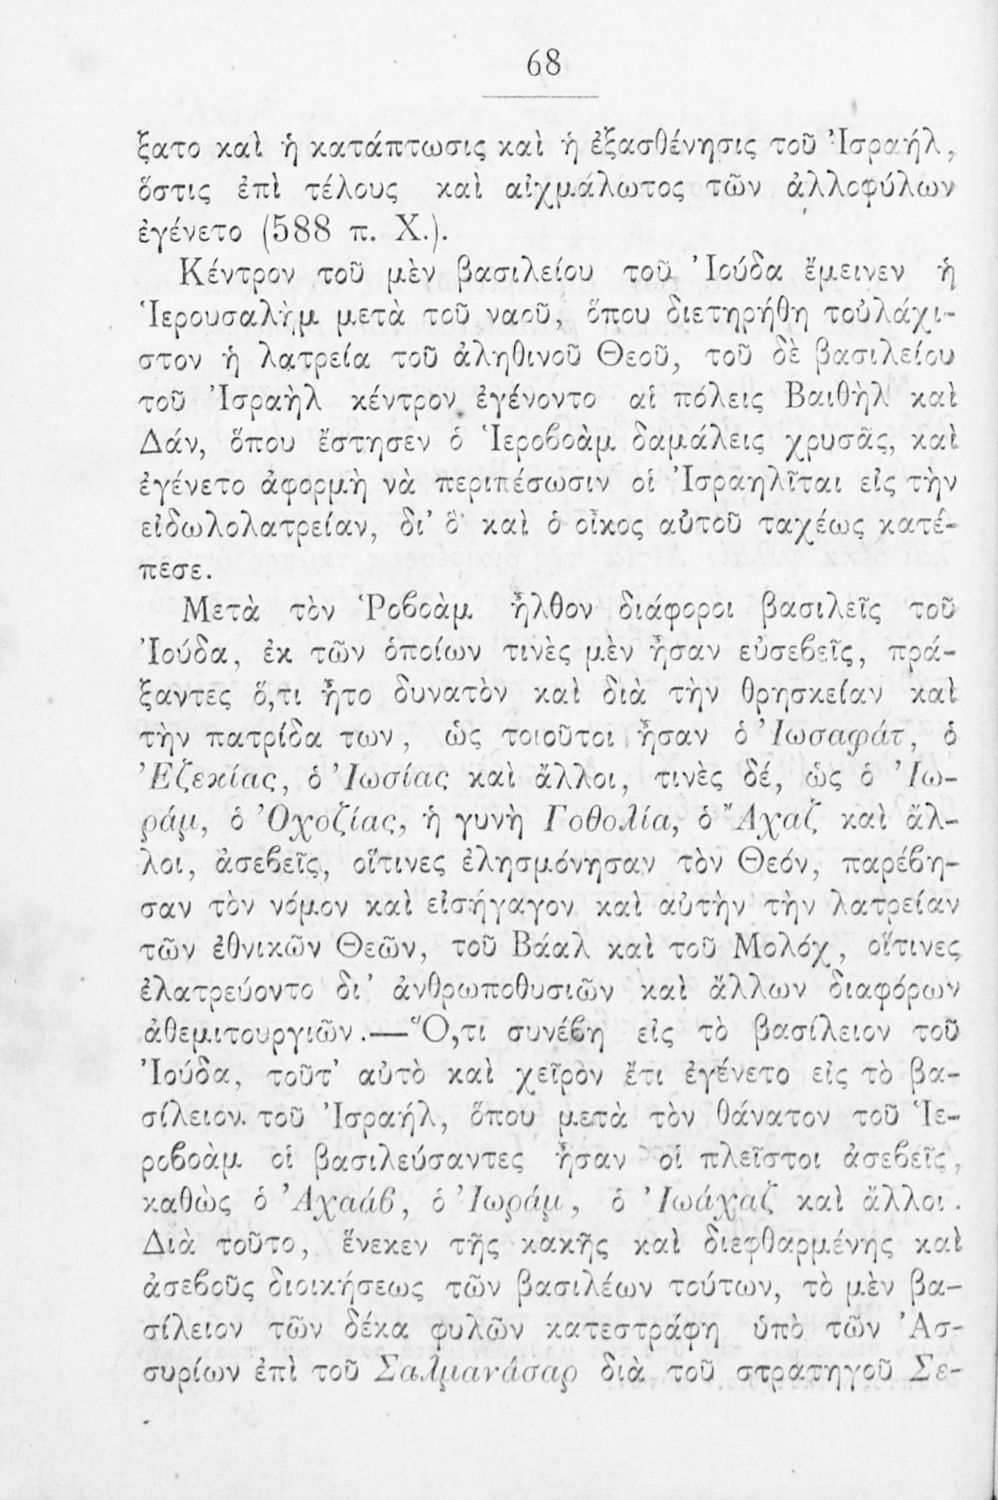 68
ξατο καὶ ἡ κατάπτωσις καὶ ἡ ἐξασθένησις τοῦ Ἰσραήλ,
ὅστις ἐπὶ τέλους καὶ αἰχμάλωτος τῶν ἀλλοφύλων
ἐγένετο (588 π. Χ.).
Κέντρον τοῦ μὲν βασιλείου τοῦ Ἰούδα ἔμεινεν ἡ
Ἱερουσαλὴμ μετὰ τοῦ ναοῦ, ὅπου διετηρήθη τοὐλάχι-
στον ἡ λατρεία τοῦ ἀληθινοῦ Θεοῦ, τοῦ δὲ βασιλείου
τοῦ Ἰσραὴλ κέντρον ἐγένοντο αἱ πόλεις Βαιθὴλ καὶ
Δάν, ὅπου ἔστησεν ὁ Ἱεροβοὰμ δαμάλεις χρυσᾶς, καὶ
ἐγένετο ἀφορμὴ νὰ περιπέσωσιν οἱ Ἰσραηλῖται εἰς τὴν
εἰδωλολατρείαν, δι' ὃ καὶ ὁ οἶκος αὐτοῦ ταχέως κατέ-
πεσε.
Μετὰ τὸν Ῥοβοὰμ ἦλθον διάφοροι βασιλεῖς τοῦ
Ἰούδα, ἐκ τῶν ὁποίων τινὲς μὲν ἦσαν εὐσεβεῖς, πρά-
ξαντες ὅ,τι ἦτο δυνατὸν καὶ διὰ τὴν θρησκείαν καὶ
τὴν πατρίδα των, ὡς τοιοῦτοι ἦσαν ὁ Ἰωσαφάτ, ὁ
Ἐζεκίας, ὁ Ἰωσίας καὶ ἄλλοι, τινὲς δέ, ὡς ὁ Ἰω-
ράμ, ὁ Ὀχοζίας, ἡ γυνὴ Γοθολία, ὁ Ἄχαζ καὶ ἄλ-
λοι, ἀσεβεῖς, οἵτινες ἐλησμόνησαν τὸν Θεόν, παρέβη-
σαν τὸν νόμον καὶ εἰσήγαγον καὶ αὐτὴν τὴν λατρείαν
τῶν ἐθνικῶν Θεῶν, τοῦ Βάαλ καὶ τοῦ Μολόχ, οἵτινες
ἐλατρεύοντο δι' ἀνθρωποθυσιῶν καὶ ἄλλων διαφόρων
ἀθεμιτουργιῶν.—Ὅ,τι συνέβη εἰς τὸ βασίλειον τοῦ
Ἰούδα, τοῦτ' αὐτὸ καὶ χεῖρὸν ἔτι ἐγένετο εἰς τὸ βα-
σίλειον τοῦ Ἰσραήλ, ὅπου μετὰ τὸν θάνατον τοῦ Ἱε-
ροβοὰμ οἱ βασιλεύσαντες ἦσαν οἱ πλεῖστοι ἀσεβεῖς,
καθὼς ὁ Ἀχαάβ, ὁ Ἰωράμ, ὁ Ἰωάχαζ καὶ ἄλλοι.
Διὰ τοῦτο, ἕνεκεν τῆς κακῆς καὶ διεφθαρμένης καὶ
ἀσεβοῦς διοικήσεως τῶν βασιλέων τούτων, τὸ μὲν βα-
σίλειον τῶν δέκα φυλῶν κατεστράφη ὑπὸ τῶν Ἀσ-
συρίων ἐπὶ τοῦ Σαλμανάσαρ διὰ τοῦ στρατηγοῦ Σε-